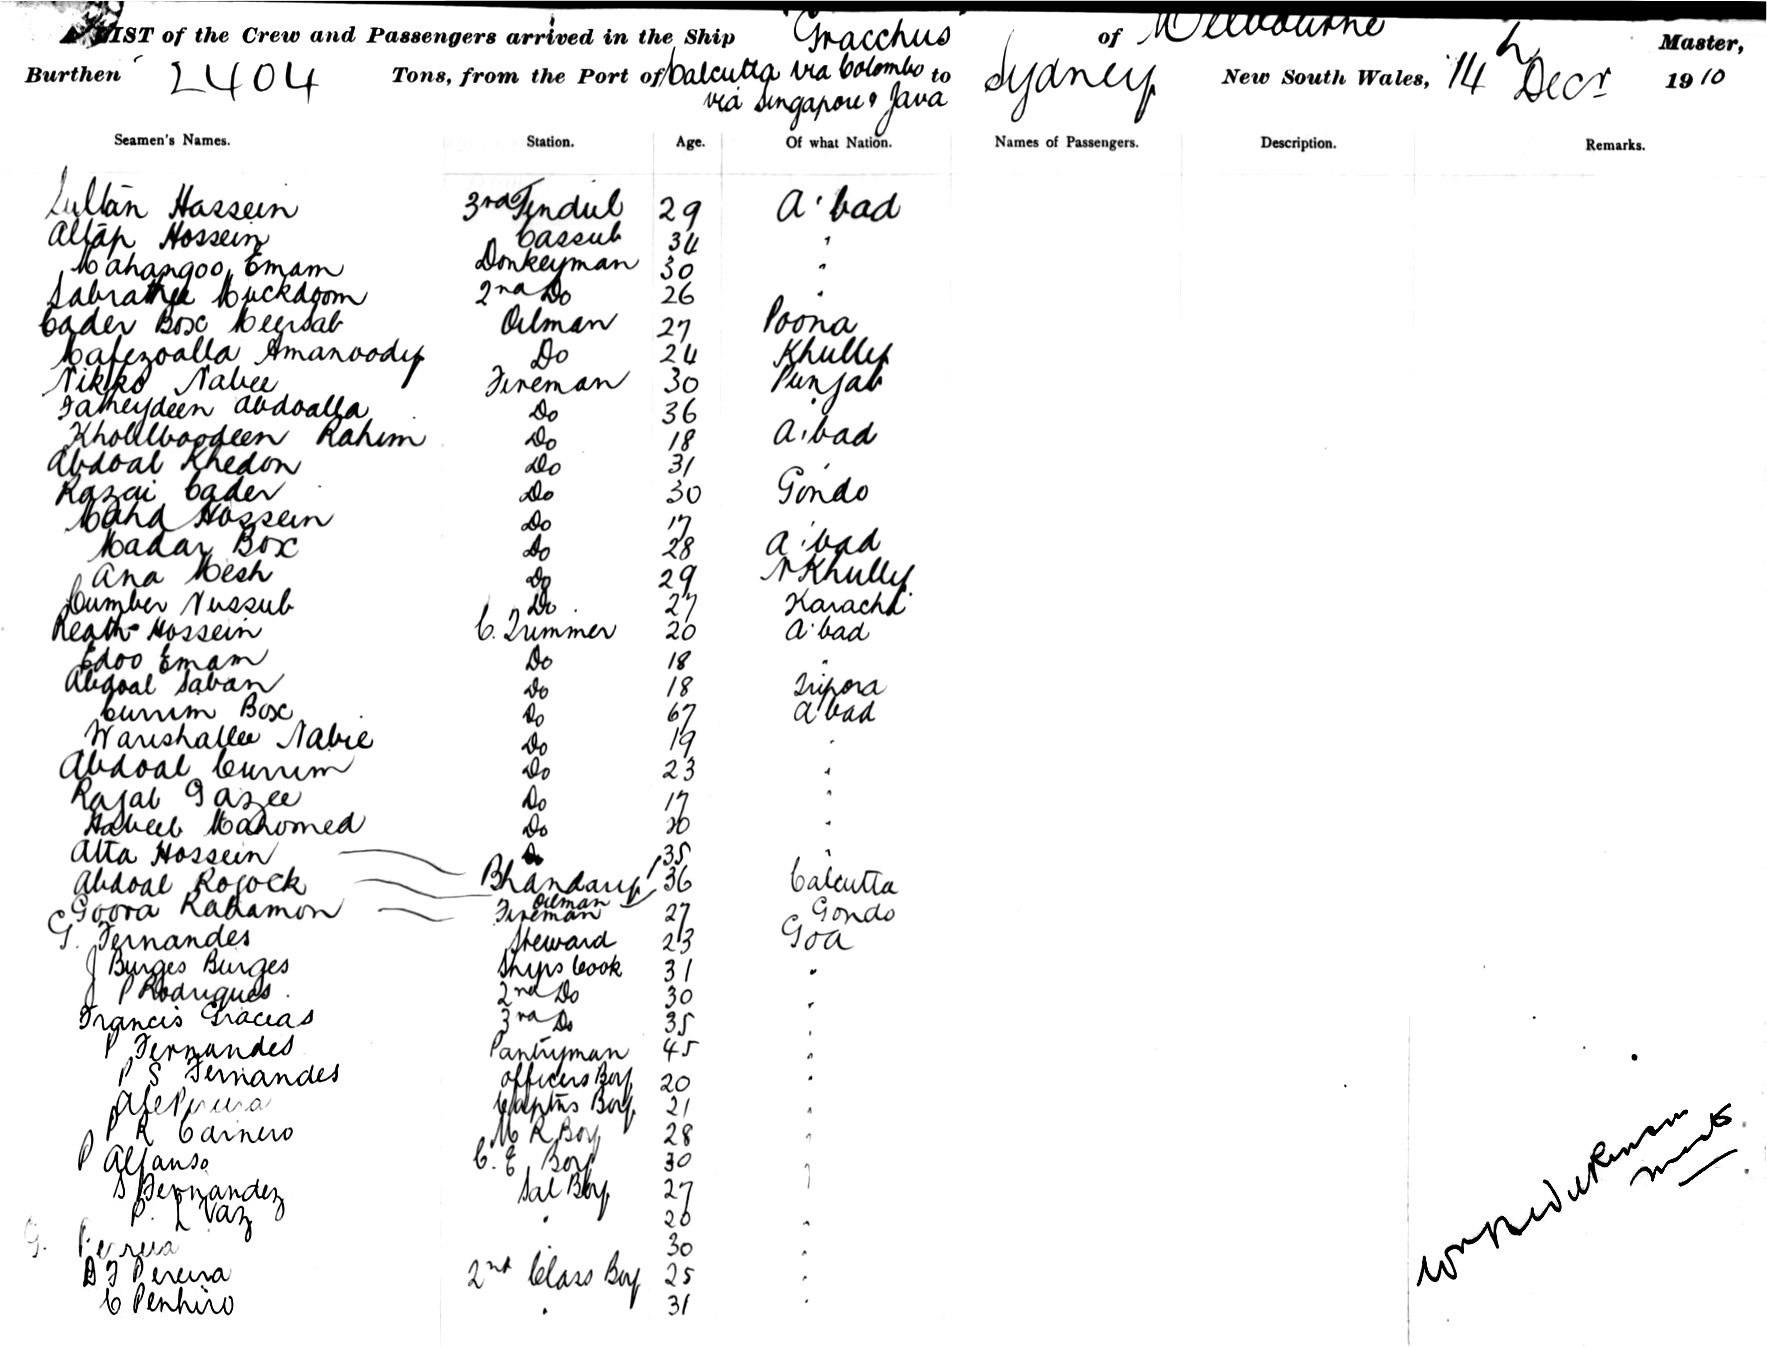 LIST of the Crew and Passengers arrived in the Ship "Gracchus" of Melbourne Master,
Burthen 2404 Tons, from the Port of Calcutta via Colombo to Sydney New South Wales, 14th Decr 1910
via Singapore & Java
Seamen's Names. Station. Age. Of what Nation. Names of Passengers. Description. Remarks.
Sultan Hassein 3rd Tindul 29 A'bad
Altap Hossein Cassub 34 "
Mahangoo Emam Donkeyman 30 "
Muckdoom 2nd Do 26 "
Cader Box Meersab Oilman 27 Poona
Hafezoalla Amanoody Do 24 Khully
Nikko Nabee Fireman 30 Punjab
Fatheydeen Abdoalla Do 36 "
Rahim Do 18 A'bad
Abdoal Khedon Do 31 "
Razai Cader Do 30 Gondo
Maha Hossein Do 17 "
Madar Box Do 28 A'bad
Ana Mesh Do 29 N Khully
Cumber Nussub Do 27 Karachi
Reath Hossein C. Trimmer 20 A'bad
Edoo Emam Do 18 "
Abdoal Saban Do 18 Tripora
Currim Box Do 67 A'bad
Warishallee Nabie Do 19 "
Abdoal Currim Do 23 "
Rajab Gazee Do 17 "
Habeeb Mahomed Do 20 "
Atta Hossein Do 35 "
Abdoal Rojock Bhandary 36 Calcutta
Oilman
Goora Rahamon Fireman 27 Gondo
G. Fernandes Steward 23 Goa
J Burges Burges Ships Cook 31 "
J P Rodrigues 2nd Do 30 "
Francis Gracias 3rd Do 35 "
P Fernandes Pantryman 45 "
P S Fernandes Officers Boy 20 "
Pereira Captns Boy 21 "
P R Carnero M R Boy 28 "
P Alfanso C. E. Boy 30 "
S Fernandez Sal Boy 27 "
P. L Vaz " 20 "
G. Pereira " 30 "
D F Pereira 2nd Class Boy 25 "
C Penhiro " 31 "